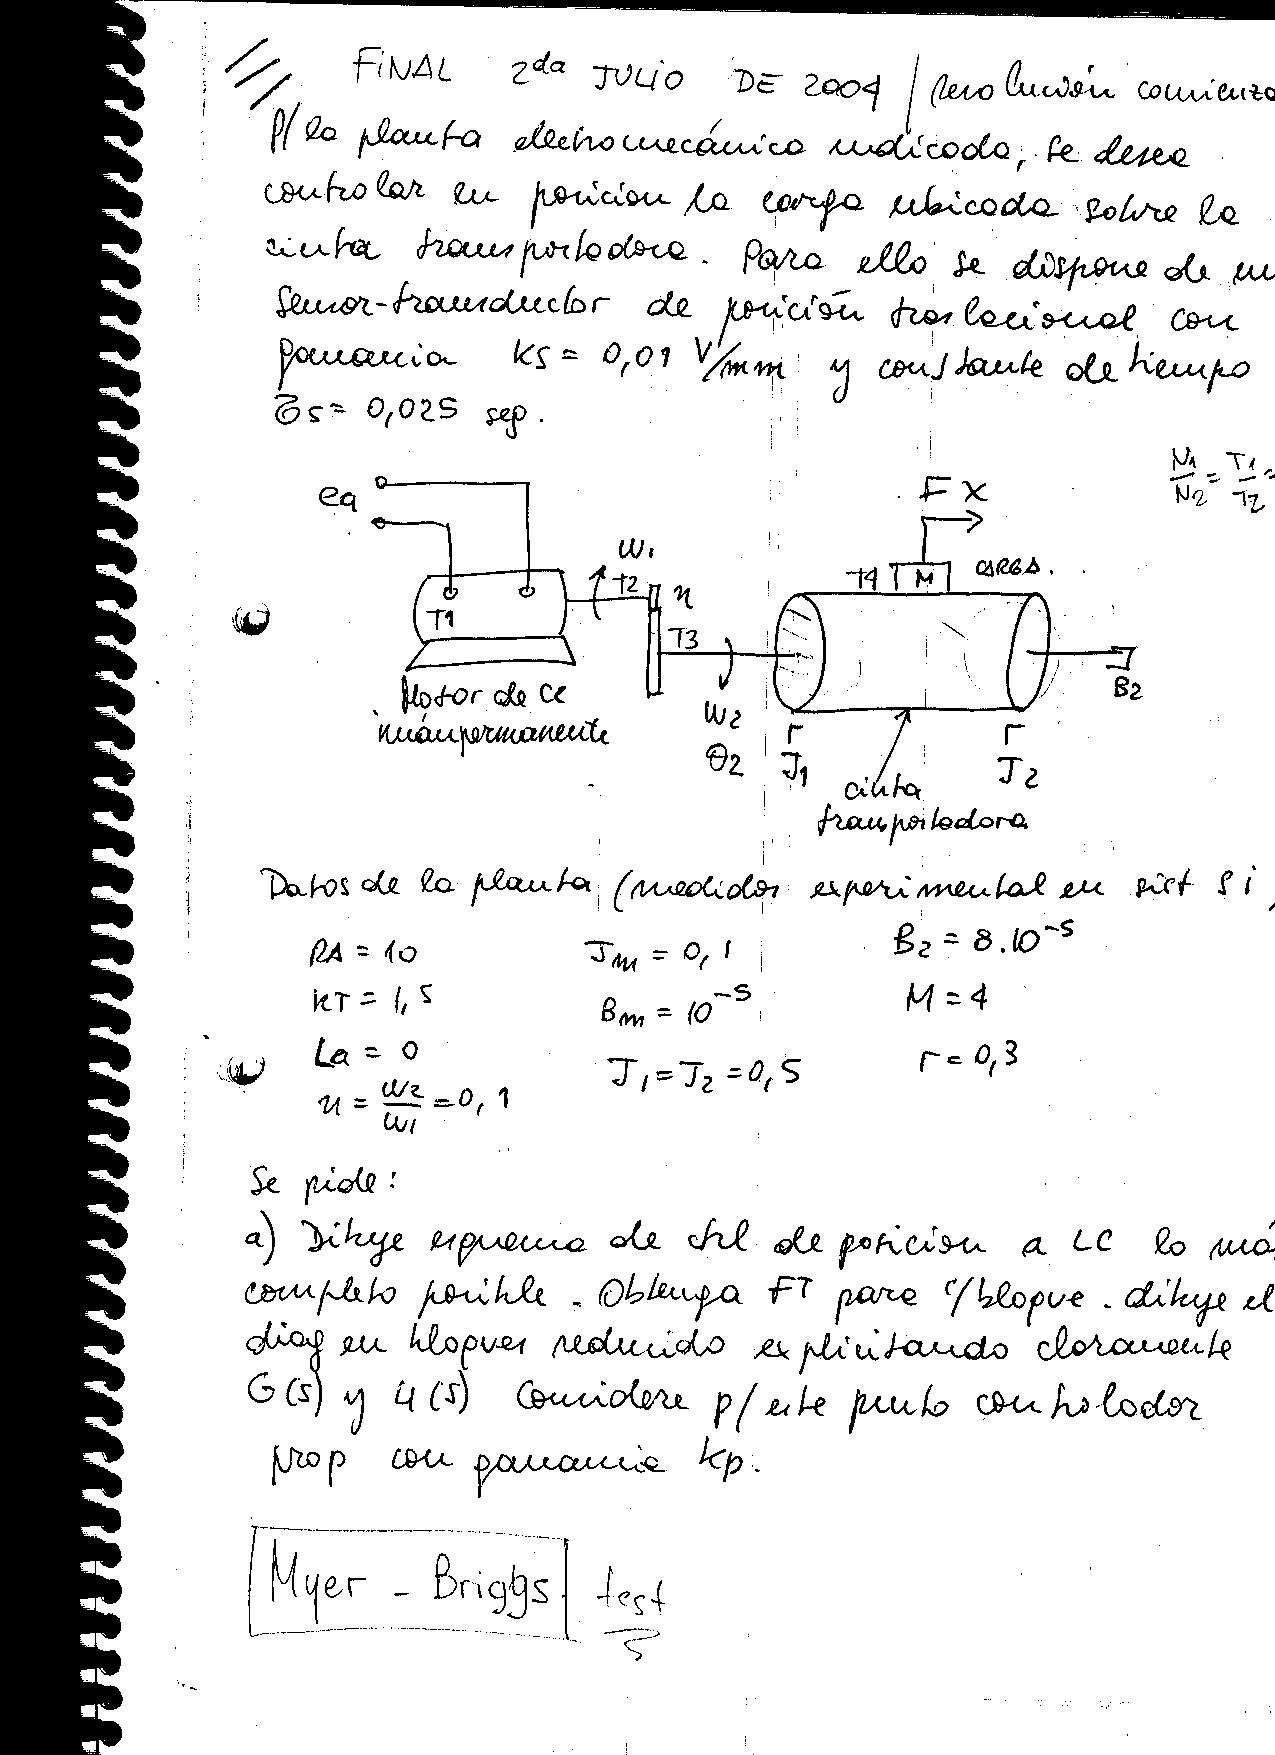 FINAL 2da JULIO DE 2009 / Resolución comienza
P/ la planta electromecánica indicada, se desea
controlar en posicion la carga ubicada sobre la
cinta transportadora. Para ello se dispone de un
sensor-transductor de posición traslacional con
ganancia KS = 0,01 V/mm y constante de tiempo
τs = 0,025 seg.
N1/N2 = T1/T2 =
ea
F X
W1
T2
n
T4
M
CARGA.
T1
T3
B2
Motor de CC
imánpermanente
W2
θ2
r
J1
r
J2
cinta
transportadora
Datos de la planta (medidos experimental en sist Si
RA = 10
Jm = 0,1
B2 = 8.10^-5
KT = 1,5
Bm = 10^-5
M = 4
La = 0
J1 = J2 = 0,5
r = 0,3
n = W2/W1 = 0,1
Se pide:
a) Dibuje esquema de ctrl de posicion a LC lo má
completo posible. Obtenga FT para c/bloque. dibuje el
diag en bloques reducido explicitando claramente
G(s) y H(s) Considere p/ este punto controlador
prop con ganancia kp.
Myer - Briggs test